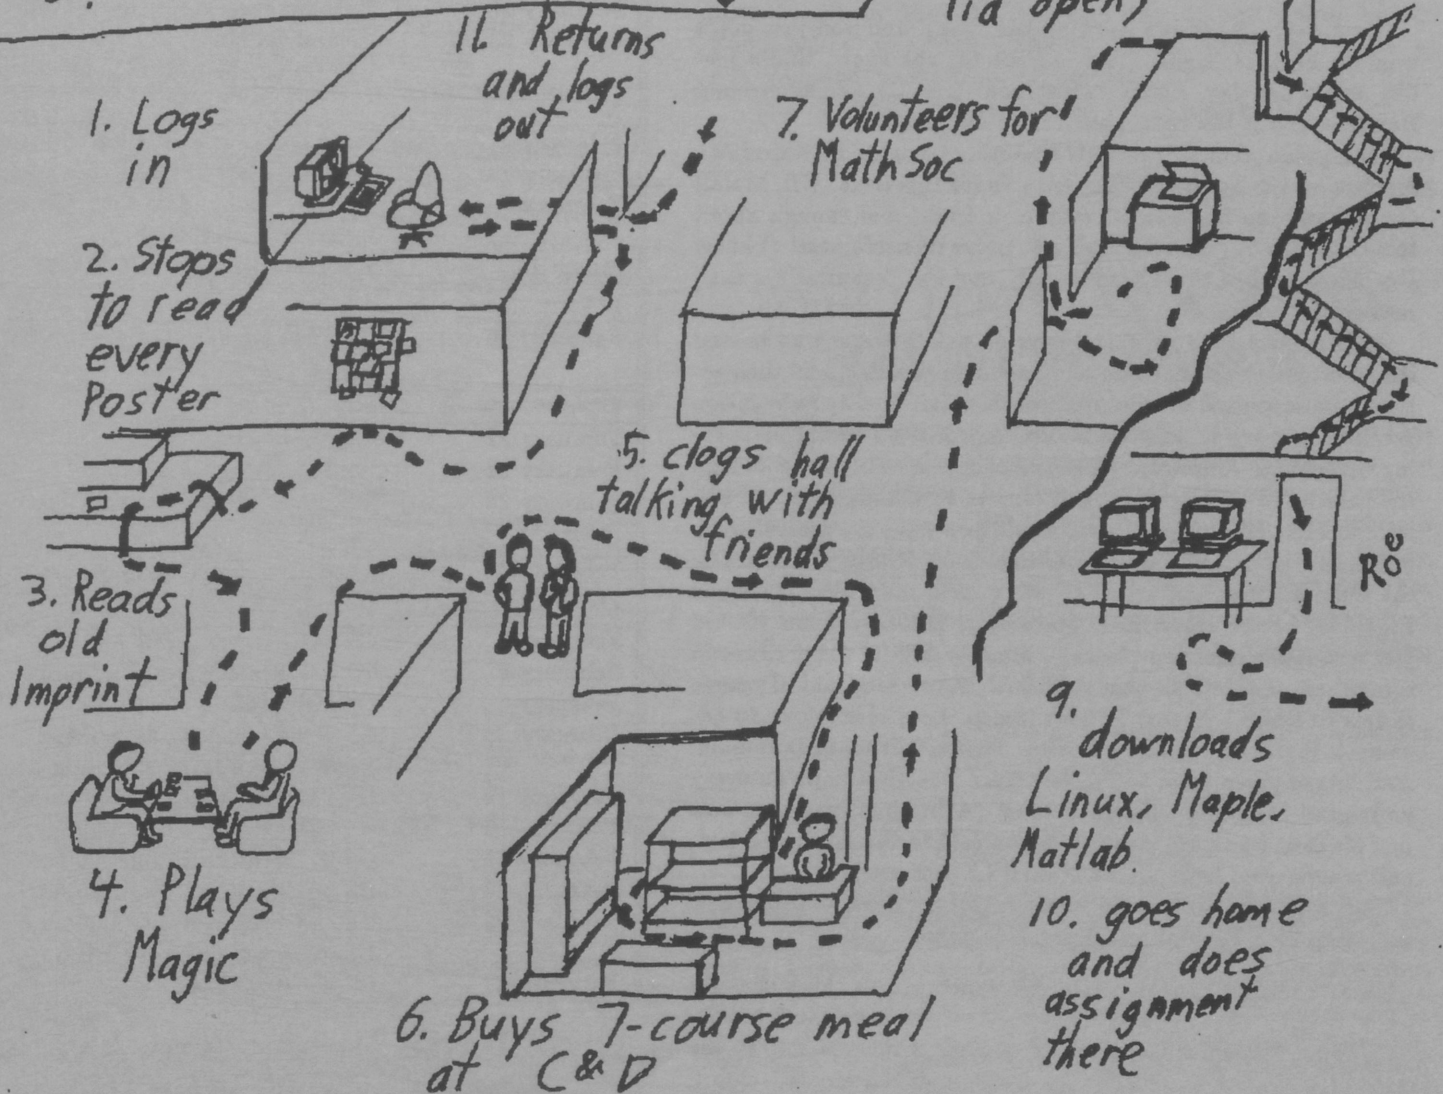 lid open)
11. Returns
and logs
out
1. Logs
in
7. Volunteers for
MathSoc
2. Stops
to read
every
Poster
5. clogs hall
talking with
friends
Roe
3. Reads
old
Imprint
9.
downloads
Linux, Maple,
Matlab.
4. Plays
Magic
10. goes home
and does
assignment
there
6. Buys 7-course meal
at C&D